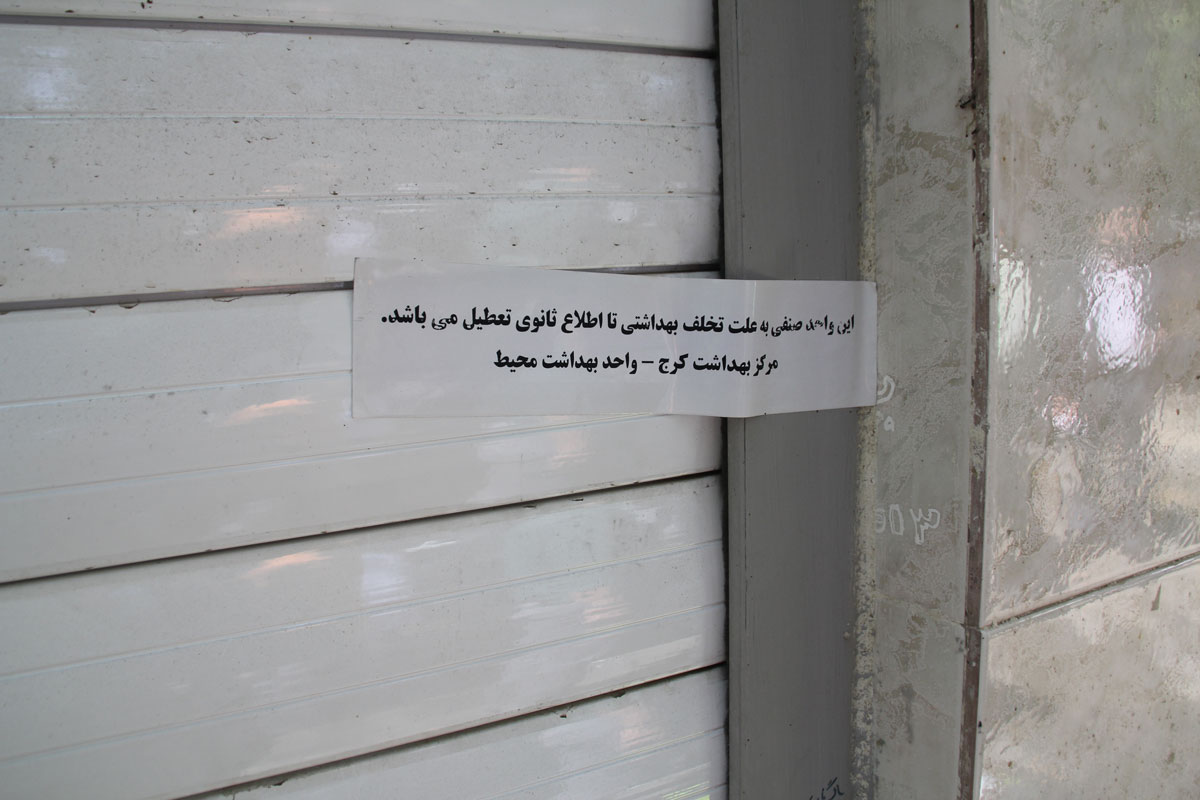 این واحد صنفی به علت تخلف بهداشتی تا اطلاع ثانوی تعطیل می باشد.
مرکز بهداشت کرج – واحد بهداشت محیط